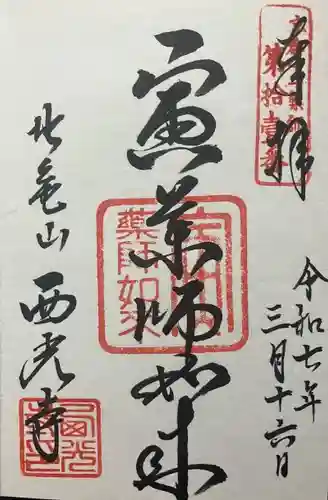 奉拝
令和七年
三月十六日
寅薬師如来
薬師如来
第拾壹番
北亀山
西光寺